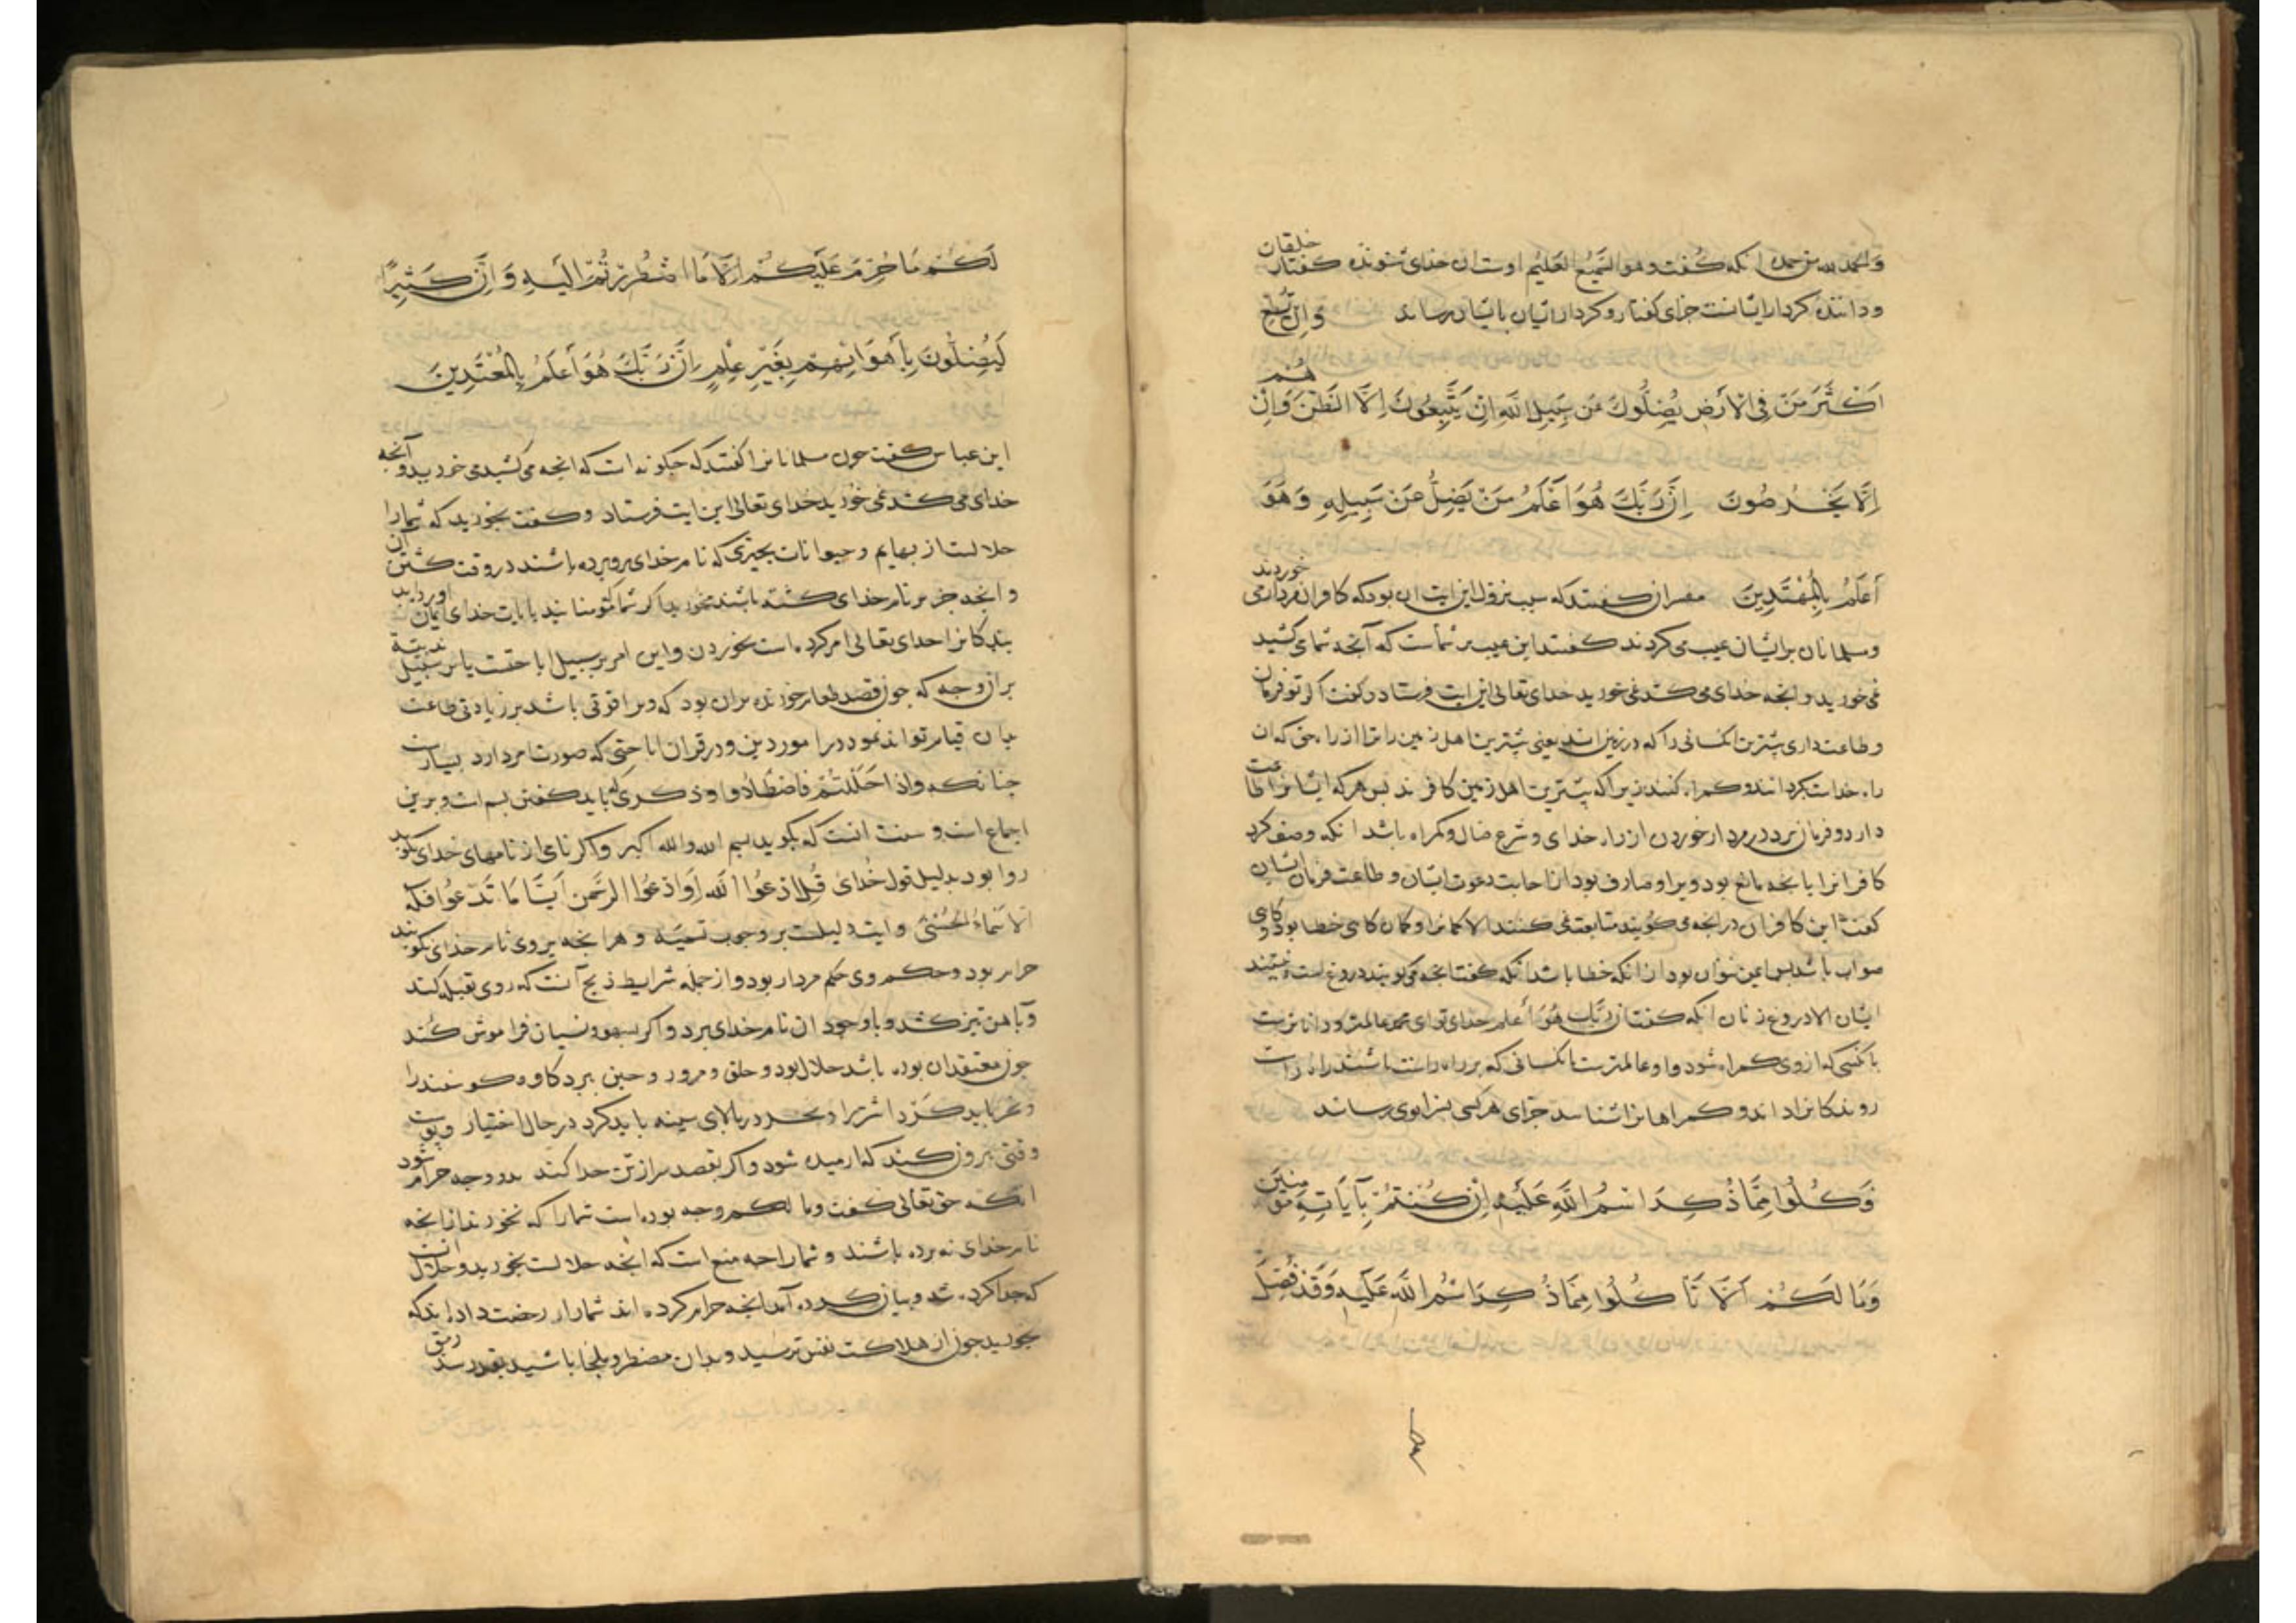 گفت وهو السَّمیعُ العَلیُم اوست ان خدای شنونده گفتار خلقان
ودانندهٔ کردار ایشانست جزای گفتار و کردار ایشان بایشان رساند وَاِن تُطِعْ
اَکْثَرَ مَنْ فِی الْاَرْضِ یُضِلُّوكَ عَنْ سَبِیلِ اللّٰهِ اِنْ یَتَّبِعُونَ اِلَّا الظَّنَّ وَاِنْ هُمْ
اِلَّا یَخْرُصُونَ اِنَّ رَبَّكَ هُوَ اَعْلَمُ مَنْ یَضِلُّ عَنْ سَبِیلِهِ وَهُوَ
أَعلَمُ بِالْمُهْتَدِینَ مفسران گفتند که سبب نزول این ایت ان بود که کافران مردار می خوردند
ومسلمانان برایشان عیب می کردند گفتند این عیب بر شماست که آنچه شما می کشید
می خورید و انچه خدای می کشد نمی خورید خدای تعالی این ایت فرستاد و گفت اکر تو فرمان
و طاعت داری بیشترین انکسانی را که در زمین اند یعنی بیشترین اهل زمین را ترا از راه حق که ان
راه خداست بکردانند و کمراه کنند زیرا که بیشترین اهل زمین کافرند بس هر که ایشانرا طاعت
دارد و فرمان برد در مردار خوردن از راه خدای و شرع ضال و کمراه باشد انکه وصف کرد
کافرانرا بانچه مانع بود ویرا و صارف بود از اجابت دعوت ایشان و طاعت فرمان ایشان
گفت این کافران در انچه می گویند متابعت نمی کنند الا کمانرا و کمان کاهی خطا بود و کاهی
صواب باشد بس ایمن نتوان بود از انکه خطا باشد انکه گفت انچه می گویند دروغ است و نیستند
ایشان الا دروغ زنان انکه گفت اِنَّ رَبَّكَ هُوَ أَعلَم خدای تو ای محمد عالمتر و داناترست
بانکسی که از وی کمراه شود و او عالمترست بانکسانی که بر راه راست باشند راه راست
روندکانرا داند و کمراهانرا شناسد جزای هر کسی بسزا بوی رساند
فَکُلُوا مِمَّا ذُکِرَ اسْمُ اللّٰهِ عَلَیْهِ اِنْ کُنْتُمْ بِآیَاتِهِ مُؤْمِنِینَ
وَمَا لَکُمْ اَلَّا تَأْکُلُوا مِمَّا ذُکِرَ اسْمُ اللّٰهِ عَلَیْهِ وَقَدْ فَصَّلَ
لَکُمْ مَا حَرَّمَ عَلَیْکُمْ اِلَّا مَا اضْطُرِرْتُمْ اِلَیْهِ وَ اِنَّ کَثِیرًا
لَیُضِلُّونَ بِأَهوَائِهِمْ بِغَیْرِ عِلْمٍ اِنَّ رَبَّكَ هُوَ أَعلَمُ بِالْمُعْتَدِینَ
ابن عباس گفت چون مسلمانانرا گفتند که چکونه است که انچه می کشید می خورید و آنچه
خدای می کشد نمی خورید خدای تعالی این ایت فرستاد و گفت بخورید که شمارا
حلالست از بهایم و حیوانات بچیزی که نام خدای برو برده باشند در وقت کشتن آن
و انچه جز بر نام خدای کشته باشند مخورید اکر شما مؤمنانید بایات خدای ایمان اورداید
بندکانرا خدای تعالی امر کرده است بخوردن واین امر بر سبیل اباحتست یا بر سبیل
بران وجه که چون قصد طعام خورنده بران بود که ویرا قوتی باشد بر زیادتی طاعت
بان قیام تواند نمود در امور دین و در قران اباحتی که صورت امر دارد بسیارست
چنانکه واذا حَلَلْتُمْ فَاصْطَادُوا و ذکری که باید گفتن بسم است و برین
اجماع است و سنت انست که بگوید بسم الله والله اکبر واکر نامی از نامهای خدای بگوید
روا بود بدلیل قول خُدای قُلِ ادْعُوا اللّٰهَ اَوِ ادْعُوا الرَّحْمنَ اَیًّا مَا تَدْعُوا فَلَهُ
الْاَسْمَاءُ الْحُسْنٰی و ایت دلیلست بر وجوب تسمیَه و هر انچه بروی نام خدای نگویند
حرام بود و حکم وی حکم مردار بود و از جمله شرایط ذبح آنست که روی بقبله کنند
وبآهن تیز کشد و باوجود ان نام خدای برد و اکر بسهو و نسیان فراموش کند
چون معتقد ان بوده باشد حلال بود و حلق و مرور و حبن ببرد کاو و کوسفند را
و نحر باید کرد اشتر را و نحر در بالای سینه باید کرد در حال اختیار
وقتی بیرون کنند که آرمیده شود و اکر بقصد سر از تن جدا کند بدو وجه حرام شود
انکه حق تعالی گفت وما لکم وجه بوده است شمارا که نخورند از انچه
نام خدای نه برده باشند و شمارا چه منع است که انچه حلالست بخورید و حلال انست
که جدا کرده شد و بیان کرده آمد انچه حرام کرده اند شمارا رخصت داده اند که
بخورید چون از هلاکت نفس ترسید و بدان مضطر و ملجا باشید بقدر سد رمق